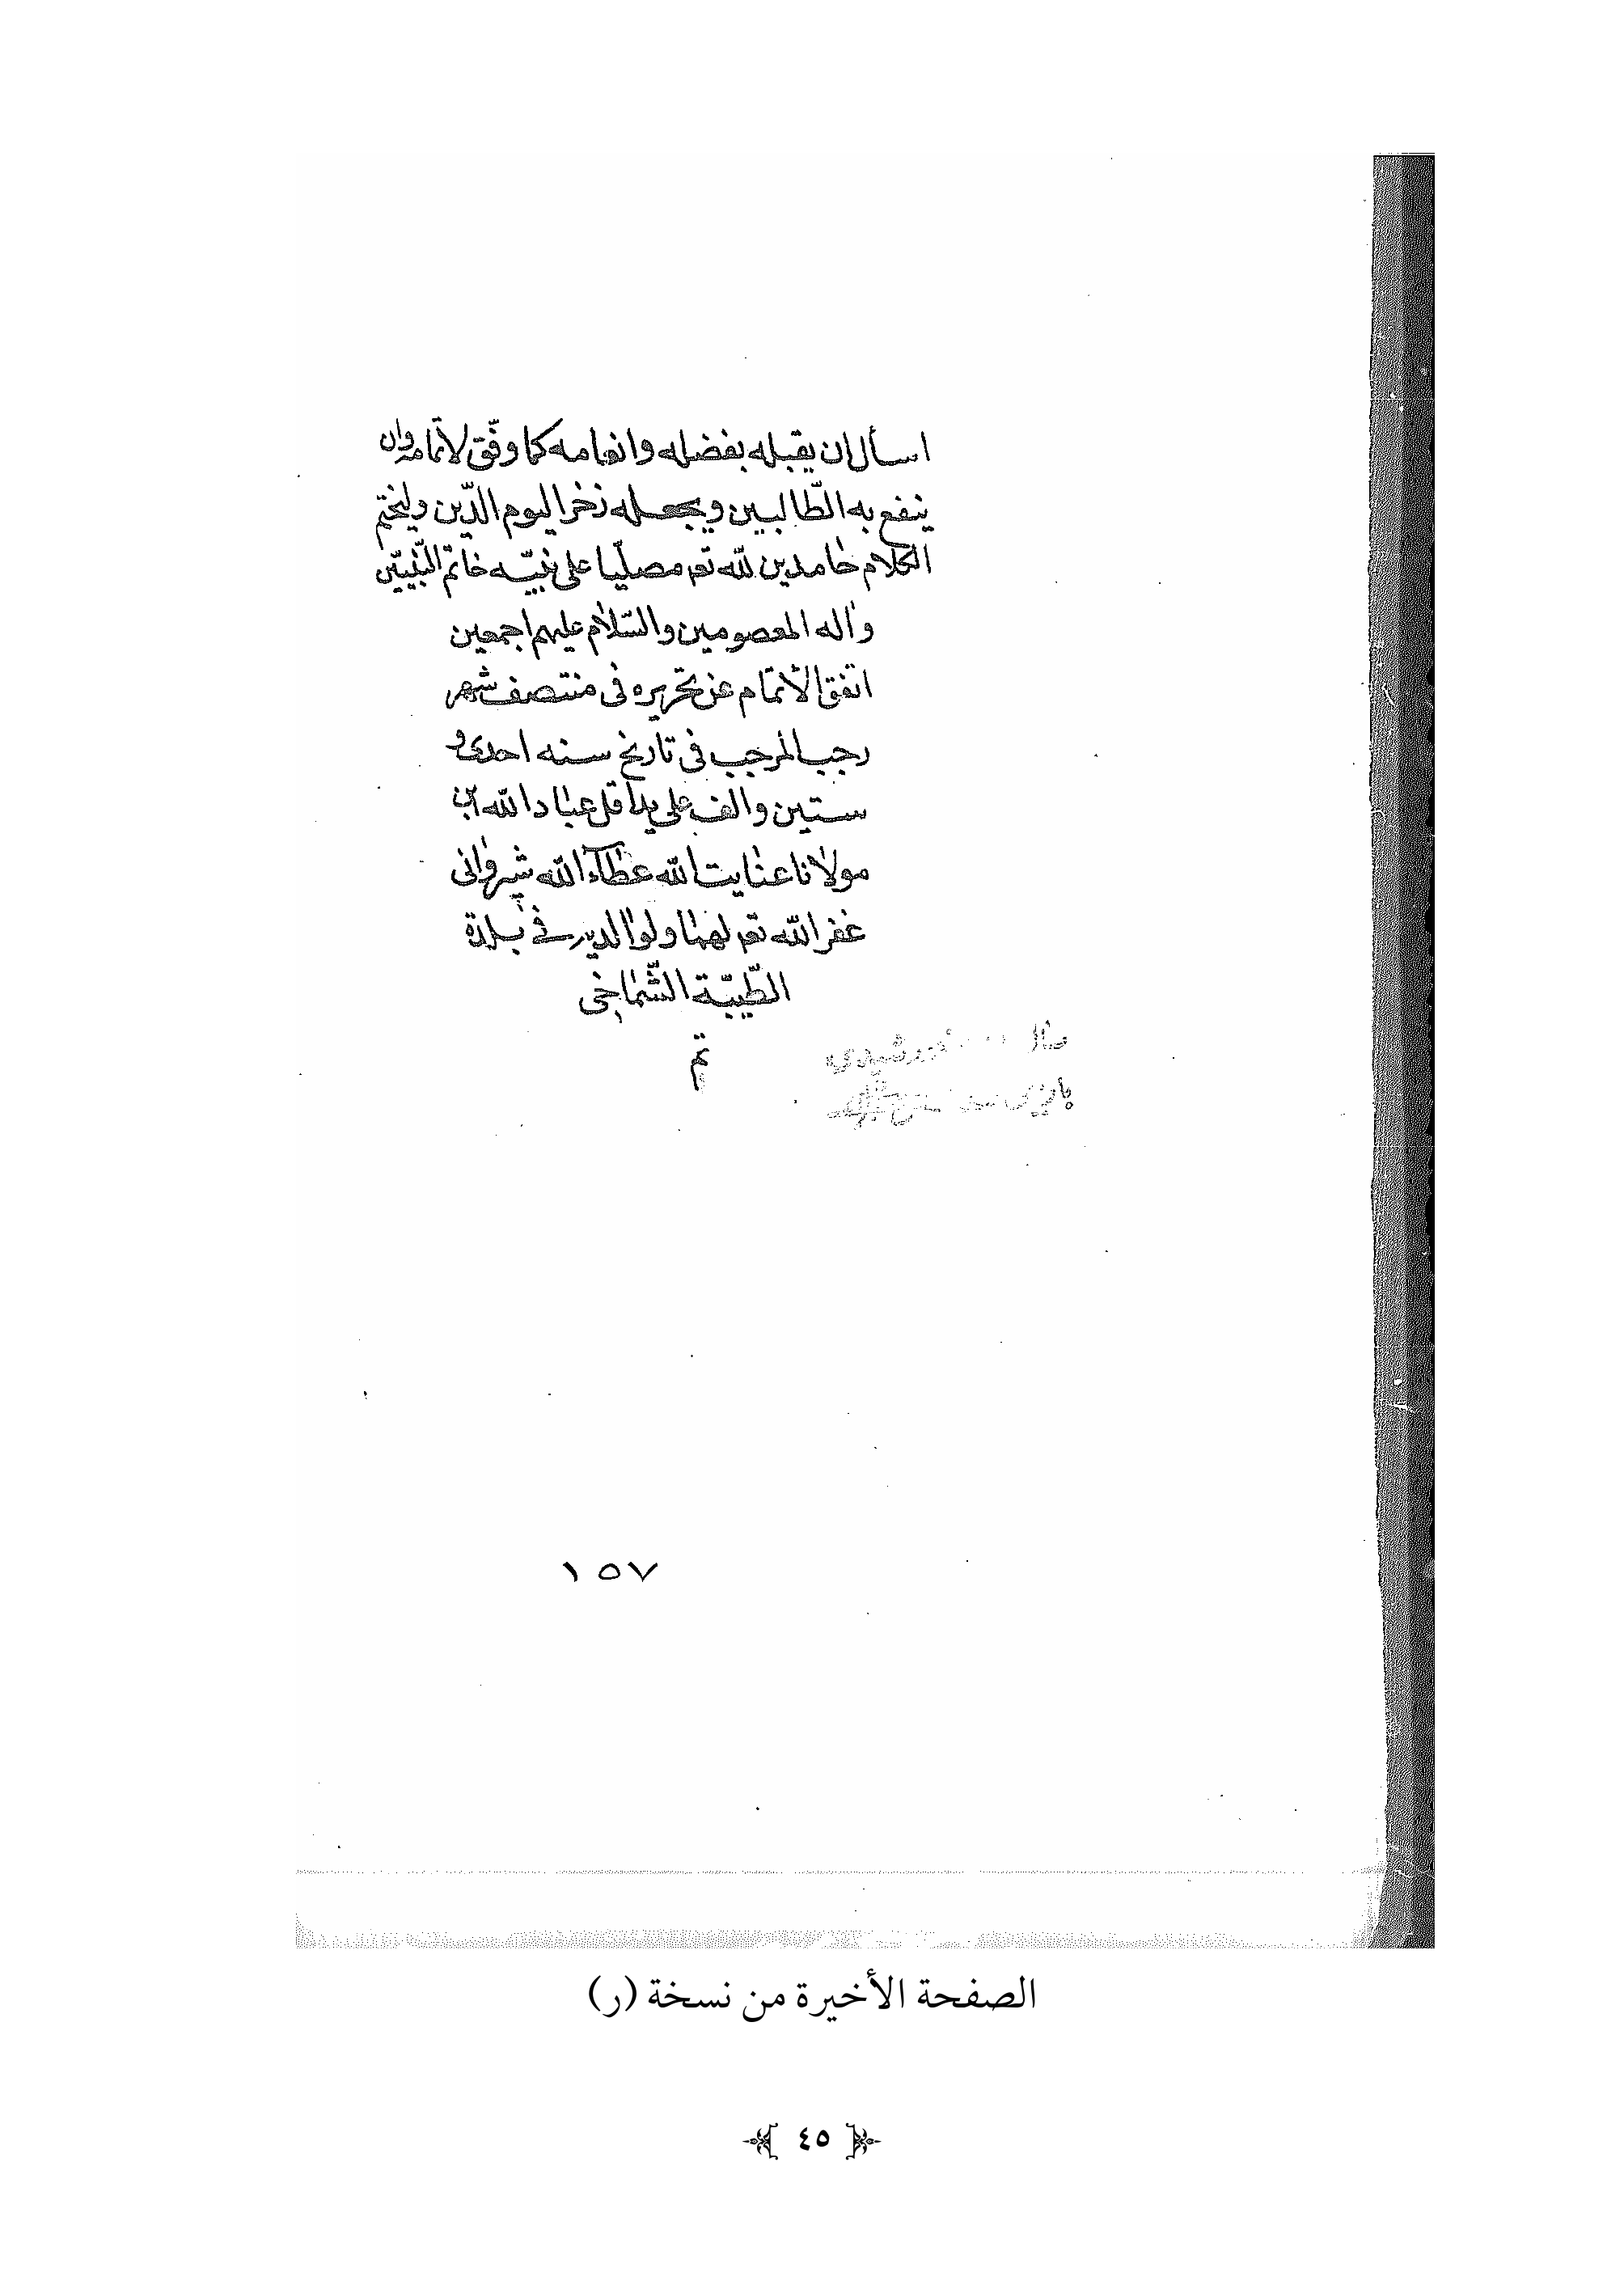 اسأل ان يقبله بفضله وانعامه كما وفّق لاتمامه وان
ينفع به الطّالبين ويجعله ذخرا ليوم الدّين ولنختم
الكلام حامدين لله تعـ مصلّيا على نبيّه خاتم النّبيّين
وآله المعصومين والسّلام عليهم اجمعين
اتفق الاتمام عن تحريره فى منتصف شهر
رجب المرجب فى تاريخ سنه احدى و
ستين والف على يد اقل عباد الله ابن
مولانا عنايت الله عطاء الله شيروانى
غفر الله تعـ لهما ولوالديه فى بلدة
الطّيبّة الشّماخى
تم
١٥٧
الصفحة الأخيرة من نسخة (ر)
٤٥